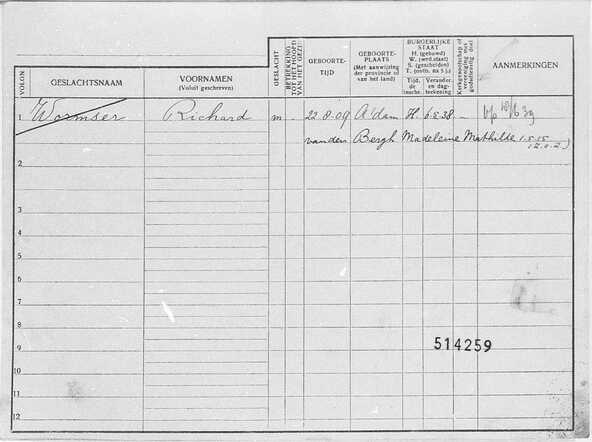 VOLGN.
GESLACHTSNAAM
VOORNAMEN
(Voluit geschreven)
GESLACHT
BETREKKING TOT HET HOOFD VAN HET GEZIN
GEBOORTE-
TIJD
GEBOORTE-
PLAATS
(Met aanwijzing
der provincie of
van het land)
BURGERLIJKE
STAAT
H. (gehuwd)
W. (werd.staat)
S. (gescheiden)
T. (ontb. na 5 j.)
Tijd.
de
inschr.
Verander.
en dag-
teekening
Kerkgenootschap of
vereeniging met
godsdienstig doel
AANMERKINGEN
1 Wormser Richard m - 22-8-09 A'dam H. 6-5-38 -
van den Bergh Madeleine Mathilde 1-5-15
2
3
4
5
6
7
8
9
514259
10
11
12